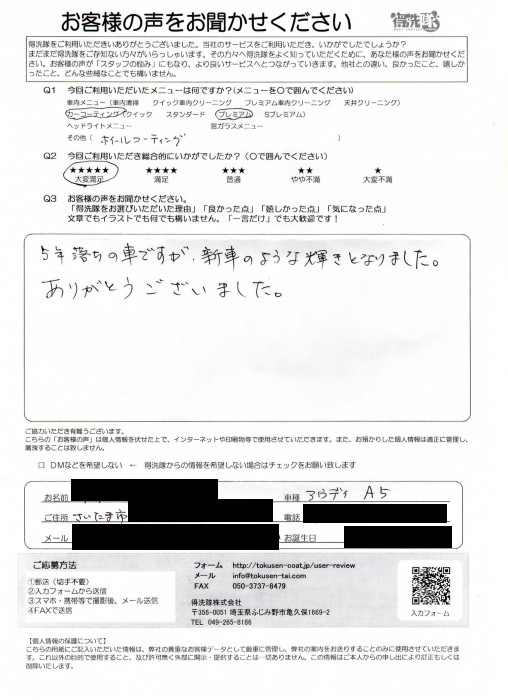 お客様の声をお聞かせください
得洗隊
得洗隊をご利用いただきいありがとうございました。当社のサービスをご利用いただき、いかがでしたでしょうか?
まだまだ得洗隊をご存知ない方々がいらっしゃいます。その方々へ得洗隊をよく知っていただくために、あなた様の声をお聞かせください。
お客様の声が「スタッフの励み」にもなり、より良いサービスへとつながっていきます。他社との違い、良かったこと、嬉しかったこと、どんな些細なことでも構いません。
Q1 今回ご利用いただいたメニューは何ですか?(メニューを〇で囲んでください)
車内メニュー(車内清掃 クイック車内クリーニング プレミアム車内クリーニング 天井クリーニング)
カーコーティング(クイック スタンダード プレミアム Sプレミアム)
ヘッドライトメニュー 窓ガラスメニュー
その他( ホイールコーティング )
Q2 今回ご利用いただき総合的にいかがでしたか?(〇で囲んでください)
★★★★★ ★★★★ ★★★ ★★ ★
大変満足 満足 普通 やや不満 大変不満
Q3 お客様の声をお聞かせください。
「得洗隊をお選びいただいた理由」「良かった点」「嬉しかった点」「気になった点」
文章でもイラストでも何でも構いません。「一言だけ」でも大歓迎です!
5年落ちの車ですが、新車のような輝きとなりました。
ありがとうございました。
ご協力いただき有難うございます。
こちらの「お客様の声」は個人情報を伏せた上で、インターネットや印刷物等で使用させていただきます。また、お預かりした個人情報は適正に管理し、
漏洩することは致しません。
□ DMなどを希望しない ← 得洗隊からの情報を希望しない場合はチェックをお願い致します
お名前 車種 アウディ A5
ご住所 さいたま市 電話
メール お誕生日
ご応募方法
①郵送(切手不要)
②入力フォームから送信
③スマホ・携帯等で撮影後、メール送信
④FAXで送信
フォーム http://tokusen-coat.jp/user-review
メール info@tokusen-tai.com
FAX 050-3737-8479
得洗隊株式会社
〒356-0051 埼玉県ふじみ野市亀久保1669-2
TEL 049-265-8186
入力フォーム
【個人情報の保護について】
こちらの用紙にご記入いただいた情報は、弊社の貴重なお客様データとして厳重に管理し、弊社の案内をお送りすることのみに使用させていただきます。
これ以外の目的で使用すること、及び許可無く外部に開示・提供することは一切ありません。この情報はご本人からの申し出により訂正もしくは
削除いたします。